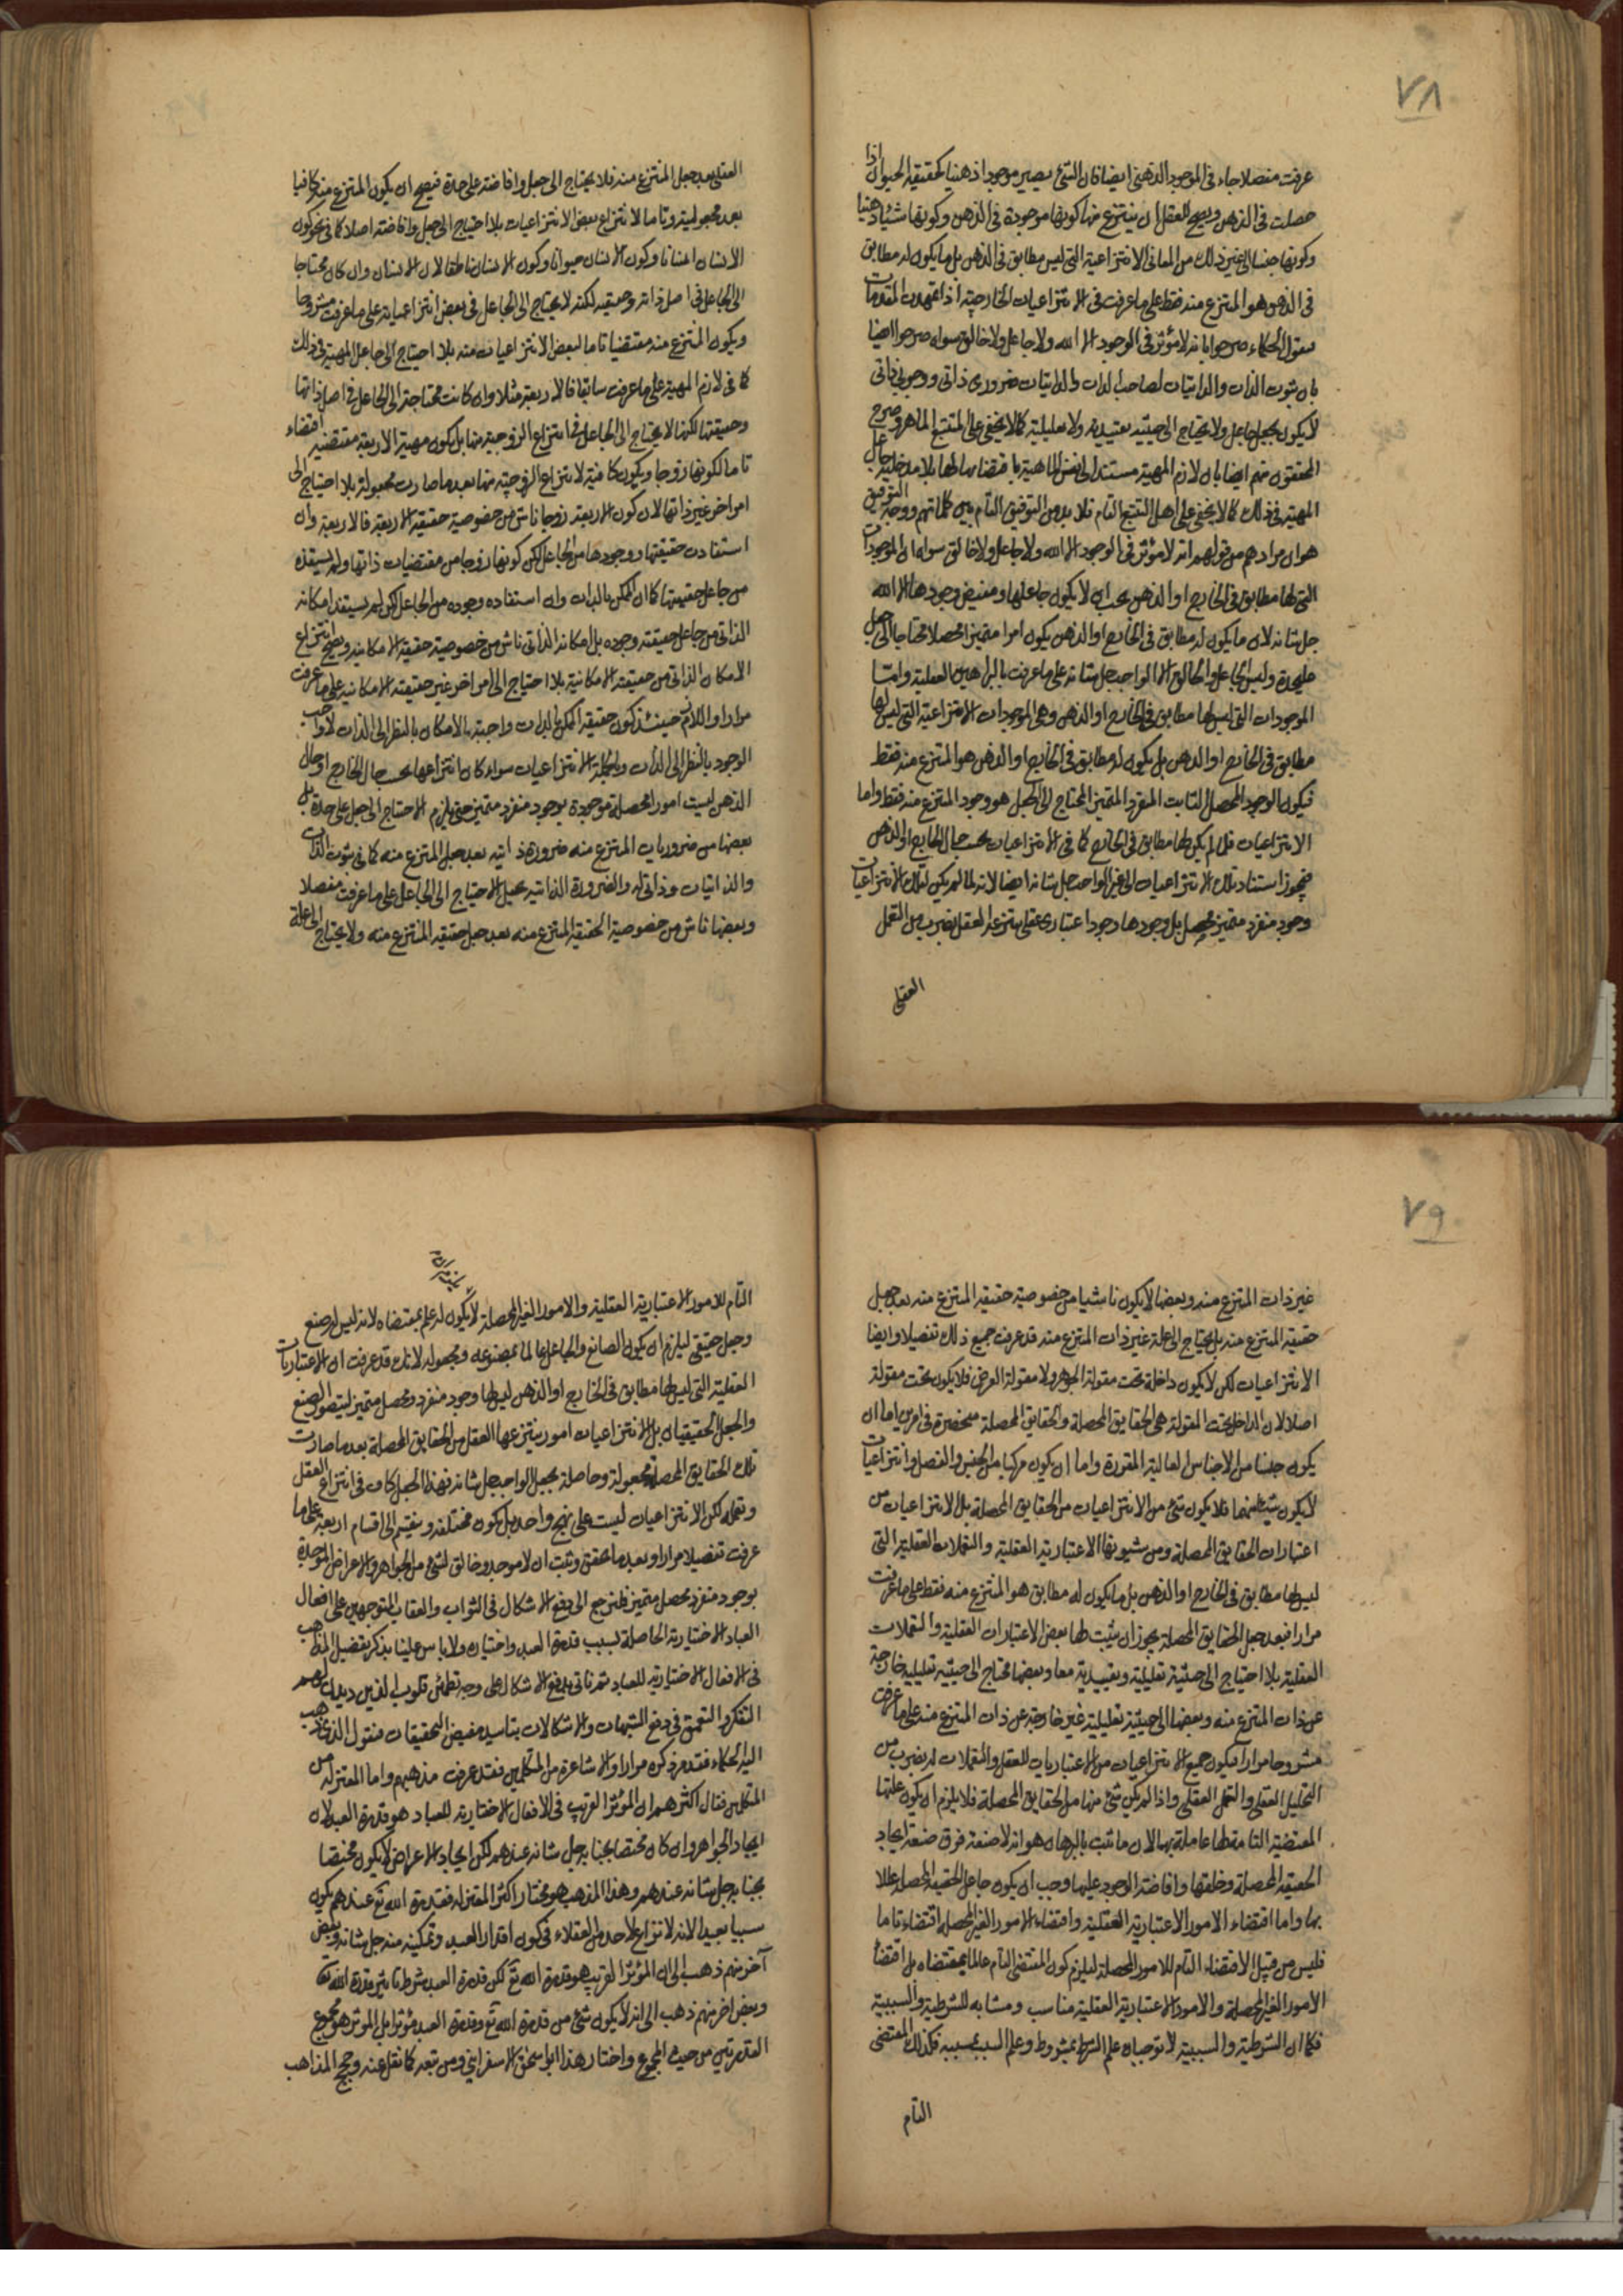 ٧٨
عرفت مفصلا جاء فى الموجود الذهنى ايضا فان الشئ يصير موجودا ذهنيا كحقيقة الحيوان اذا
حصلت فى الذهن ويصح للعقل ان ينتزع منها كونها موجودة فى الذهن وكونها شيئا ذهنيا
وكونها جنسا الى غير ذلك من المعانى الانتزاعية التى ليس مطابق فى الذهن بل ما يكون له مطابق
فى الذهن هو المنتزع منه فقط على ما عرفت فى الانتزاعيات الخارجية اذا تمهدت المقدمات
فنقول الحكماء صرحوا بانه لا مؤثر فى الوجود الا الله ولا جاعل ولا خالق سواه صرحوا ايضا
بان ثبوت الذات والذاتيات لصاحب الذات والذاتيات ضرورى ذاتى ووجوبى ذاتى
لا يكون بجعل جاعل ولا يحتاج الى حيثية تقييدية ولا تعليلية كما لا يخفى على المتتبع الماهر وصرح
المحققون منهم ايضا بان لازم المهية مستند الى نفس الماهية باقتضائها لها بلا مدخلية جاعل
المهية فى ذلك كما لا يخفى على اهل التتبع التام فلا بد من التوفيق التام بين كلماتهم ووجه التوفيق
هو ان مرادهم من قولهم انه لا مؤثر فى الوجود الا الله ولا جاعل ولا خالق سواه ان الموجودات
التى لها مطابق فى الخارج او الذهن يجب ان لا يكون جاعلها ومفيض وجودها الا الله
جل شانه لان ما يكون له مطابق فى الخارج او الذهن يكون امرا متميزا محصلا محتاجا الى جعل
عليحدة وليس الجاعل والخالق الا الواجب جل شانه على ما عرفت بالبراهين العقلية واما
الموجودات التى ليس لها مطابق فى الخارج او الذهن وهى الموجودات الانتزاعية التى ليس لها
مطابق فى الخارج او الذهن بل يكون له مطابق فى الخارج او الذهن هو المنتزع منه فقط
فيكون الوجود المحصل الثابت المنفرد المتميز المحتاج الى الجعل هو وجود المنتزع منه فقط واما
الانتزاعيات فلما لم يكن لها مطابق فى الخارج كما فى الانتزاعيات بحسب حال الخارج او الذهن
فيجوز استناد تلك الانتزاعيات الى غير الواجب جل شانه ايضا لانه لما لم يكن لتلك الانتزاعيات
وجود منفرد متميز محصل بل وجودها وجود اعتبارى عقلى ينتزعه العقل بضرب من التعمل
العقلى
العقلى بعد جعل المنتزع منه فلا يحتاج الى جعل وافاضته على حدة فيصح ان يكون المنتزع منه كافيا
بعد مجعوليته وتاما لانتزاع بعض الانتزاعيات بلا احتياج الى جعل وافاضته اصلا كما فى نحو كون
الانسان انسانا وكون الانسان حيوانا وكون الانسان ناطقا لان الانسان وان كان محتاجا
الى الجاعل فى اصل ذاته وحقيقته لكنه لا يحتاج الى الجاعل فى بعض انتزاعياته على ما عرفت مشروحا
ويكون المنتزع منه مقتضيا تاما لبعض الانتزاعيات منه بلا احتياج الى جاعل المهية فى ذلك
كما فى لازم المهية على ما عرفت سابقا فالاربعة مثلا وان كانت محتاجة الى الجاعل فى اصل ذاتها
وحقيقتها لكنها لا يحتاج الى الجاعل فى انتزاع الزوجية منها بل يكون مهية الاربعة مقتضية اقتضاء
تاما لكونها زوجا ويكون كافية لانتزاع الزوجية منها بعد ما صارت مجعولة بلا احتياج الى
امر اخر غير ذاتها لان كون الاربعة زوجا ناش من خصوصية حقيقة الاربعة فالاربعة وان
استفادت حقيقتها ووجودها من الجاعل لكن كونها زوجا من مقتضيات ذاتها ولم يستفده
من جاعل حقيقتها كما ان الممكن بالذات وان استفاده وجوده من الجاعل لكن لم يستفد امكانه
الذاتى من جاعل حقيقته وجوده بل امكانه الذاتى ناش من خصوصية حقيقة الامكانية ويصح انتزاع
الامكان الذاتى من حقيقته الامكانية بلا احتياج الى امر اخر غير حقيقته الامكانية على ما عرفت
مرارا واللازم حينئذ كون حقيقة الممكن بالذات واجبة الامكان بالنظر الى الذات لا واجب
الوجود بالنظر الى الذات وبالجملة الانتزاعيات سواء كان انتزاعها بحسب حال الخارج او حال
الذهن ليست امورا محصلة موجودة بوجود منفرد متميز حتى يلزم الاحتياج الى جعل على حدة بل
بعضها من ضروريات المنتزع منه ضرورة ذاتية بعد جعل المنتزع منه كما فى ثبوت الذات
والذاتيات وذاتى له والضرورة الذاتية يحيل الاحتياج الى الجاعل على ما عرفت مفصلا
وبعضها ناش من خصوصية الحقيقة المنتزع منه بعد جعل حقيقة المنتزع منه ولا يحتاج الى علة
٧٩
غير ذات المنتزع منه وبعضها لا يكون ناشيا من خصوصية حقيقة المنتزع منه بعد جعل
حقيقة المنتزع منه بل يحتاج الى علة غير ذات المنتزع منه قد عرفت جميع ذلك تفصيلا وايضا
الانتزاعيات لكن لا يكون داخلة تحت مقولة الجوهر ولا مقولة العرض فلا يكون تحت مقولة
اصلا لان الداخل تحت المقولة هى الحقايق المحصلة والحقايق المحصلة منحصرة فى امرين اما ان
يكون جنسا من الاجناس العالية المقررة واما ان يكون مركبا من الجنس والفصل وانتزاعيات
لا يكون شيئا منهما فلا يكون شئ من الانتزاعيات من الحقايق المحصلة بل الانتزاعيات من
اعتبارات الحقايق المحصلة ومن شيونها الاعتبارية العقلية والتعملات العقلية التى
ليس لها مطابق فى الخارج او الذهن بل ما يكون له مطابق هو المنتزع منه فقط على ما عرفت
مرارا فبعد جعل الحقايق المحصلة يجوز ان يثبت لها بعض الاعتبارات العقلية والتعملات
العقلية بلا احتياج الى حيثية تعليلية وتقييدية معا وبعضها محتاج الى حيثية تعليلية خارجة
عن ذات المنتزع منه وبعضها الى حيثية تعليلية غير خارجة عن ذات المنتزع منه على ما عرفت
مشروحا مرارا فيكون جميع الانتزاعيات من الاعتباريات للعقل والتعملات له بضرب من
التحليل العقلى والتعمل العقلى واذا لم يكن شئ منها من الحقايق المحصلة فلا يلزم ان يكون علتها
المقتضية التامة لها عاملة بها لان ما ثبت بالبرهان هو انه لا صنعة فوق صنعة ايجاد
الحقيقة المحصلة وخلقها وافاضة الوجود عليها وجب ان يكون جاعل الحقيقة المحصلة عالما
بها واما اقتضاء الامور الاعتبارية العقلية واقتضاء الامور الغير المحصلة اقتضاء تاما
فليس من قبيل الاقتضاء التام للامور المحصلة ليلزم كون المقتضى التام عالما بمقتضاه بل اقتضاء
الامور الغير المحصلة والامور الاعتبارية العقلية مناسب ومشابه للشرطية والسببية
فكما ان الشرطية والسببية لا توجبان علم الشرط بمشروط وعلم السبب بمسببه فكذلك المقتضى
التام
التام للامور الاعتبارية العقلية والامور الغير المحصلة لا يكون له علم بمقتضاه لانه ليس له صنع
وجعل حقيقى ليلزم ان يكون الصانع والجاعل عالما بمصنوعه ومجعوله لانك قد عرفت ان الاعتباريات
العقلية التى ليس لها مطابق فى الخارج او الذهن ليس لها وجود منفرد ومحصل متميز ليتصور الصنع
والجعل الحقيقيان بل الانتزاعيات امور ينتزعها العقل من الحقايق المحصلة بعد ما صارت
تلك الحقايق المحصلة مجعولة وحاصلة بجعل الواجب جل شانه فهذا الجعل كاف فى انتزاع العقل
وتعمله لكن الانتزاعيات ليست على نهج واحد بل يكون مختلفة وينقسم الى اقسام اربعة على ما
عرفت تفصيلا مرارا وبعد ما تحقق وثبت ان لا موجد وخالق لشئ من الجواهر والاعراض الموجودة
بوجود منفرد محصل متميز فلنرجع الى دفع الاشكال فى الثواب والعقاب المتوجهين على افعال
العباد الاختيارية الحاصلة بسبب قدرة العبد واختياره ولا باس علينا بذكر تفصيل المذاهب
فى الافعال الاختيارية للعباد ثم ناتى بدفع الاشكال على وجه تطمئن قلوب الذين ديدنهم
التفكر والتعمق فى دفع الشبهات والاشكالات بتاييد مفيض التحقيقات فنقول الذى ذهب
اليه الحكماء فقد مر ذكره مرارا والاشاعرة من المتكلمين فقد عرفت مذهبهم واما المعتزلة من
المتكلمين فقال اكثرهم ان المؤثر القريب فى الافعال الاختيارية للعباد هو قدرة العبد لان
ايجاد الجواهر وان كان مختصا بجنابه جل شانه عندهم لكن ايجاد الاعراض لا يكون مختصا
بجنابه جل شانه عندهم وهذا المذهب هو مختار اكثر المعتزلة فقدرة الله تع عندهم يكون
سببا بعيدا لانه لا نزاع لاحد من العقلاء فى كون اقدار العبد وتمكينه منه جل شانه وبعض
آخر منهم ذهب الى ان المؤثر القريب هو قدرة الله تع لكن قدرة العبد شرط تاثير قدرة الله تع
وبعض اخر منهم ذهب الى انه لا يكون شئ من قدرة الله تع وقدرة العبد مؤثرا بل المؤثر هو مجموع
القدرتين من حيث المجموع واختار هذا ابو اسحق الاسفراينى ومن تبعه كما نقل عنه وحجج المذاهب